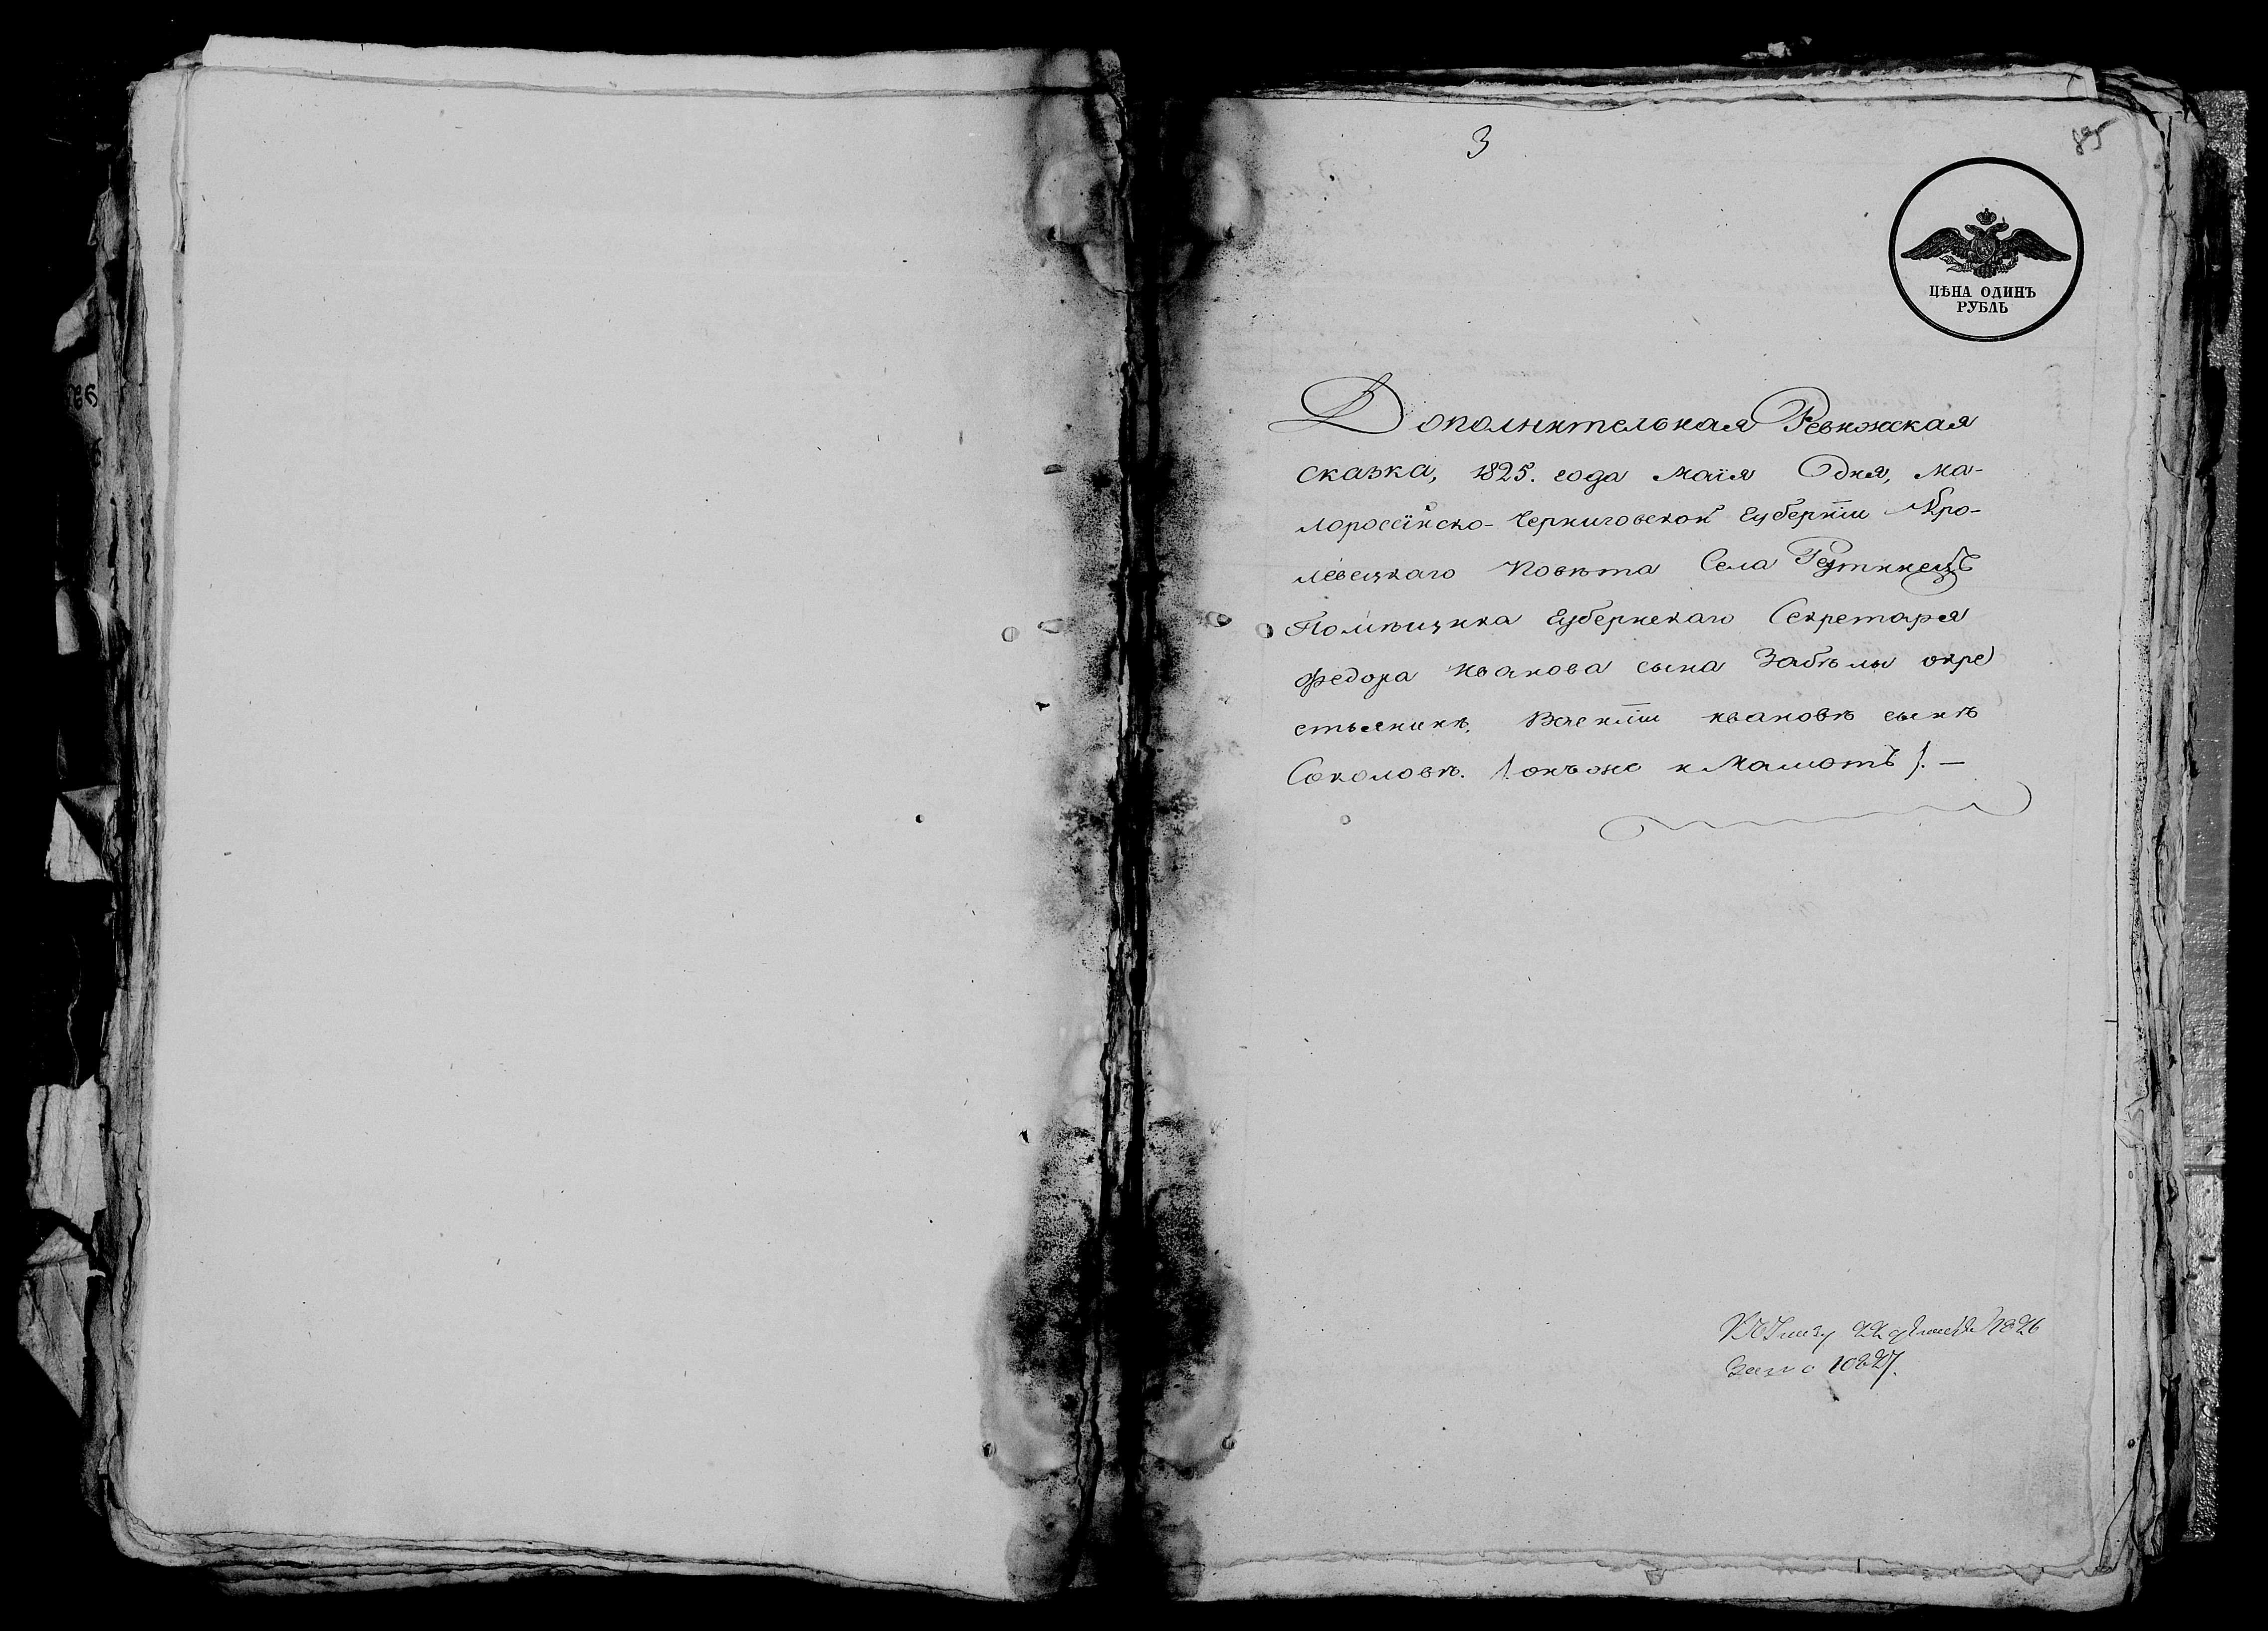 3
85
ЦѢНА ОДИНЪ
РУБЛЬ
Дополнительная Ревижская
сказка, 1825. года маiя дня, Ма-
лороссiйско-Черниговской Губернiи Кро-
левецкаго Повѣта Села Реутинецъ
Помѣщика Губернскаго Секретаря
Федора Иванова сына Забѣлы окре
стьянинѣ, Василiи Ивановѣ сынѣ
Соколовѣ. /: онъ же и Мамотъ :/. —
22 1826